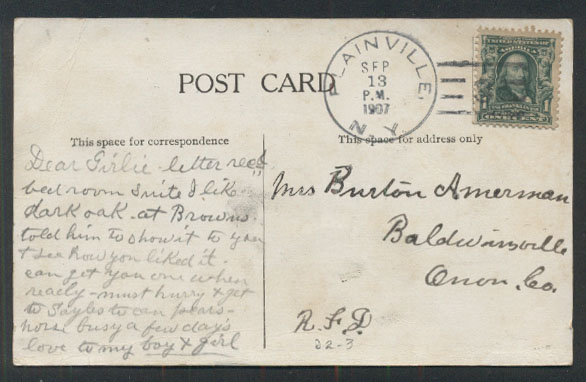 POST CARD
PLAINVILLE,
SEP
13
P.M.
1907
N.Y.
UNITED STATES OF AMERICA
1 FRANKLIN 1
ONE CENT
This space for correspondence
This space for address only
Dear Girlie - letter recd
bed room Suite I like
dark oak - at Browns
told him to show it to you
& see how you liked it.
can get you one when
ready - must hurry & get
to Sayles to can pears -
hors busy a few days
love to my boy & girl
Mrs Burton Amerman
Baldwinsville
Onon. Co.
R.F.D.
32-3